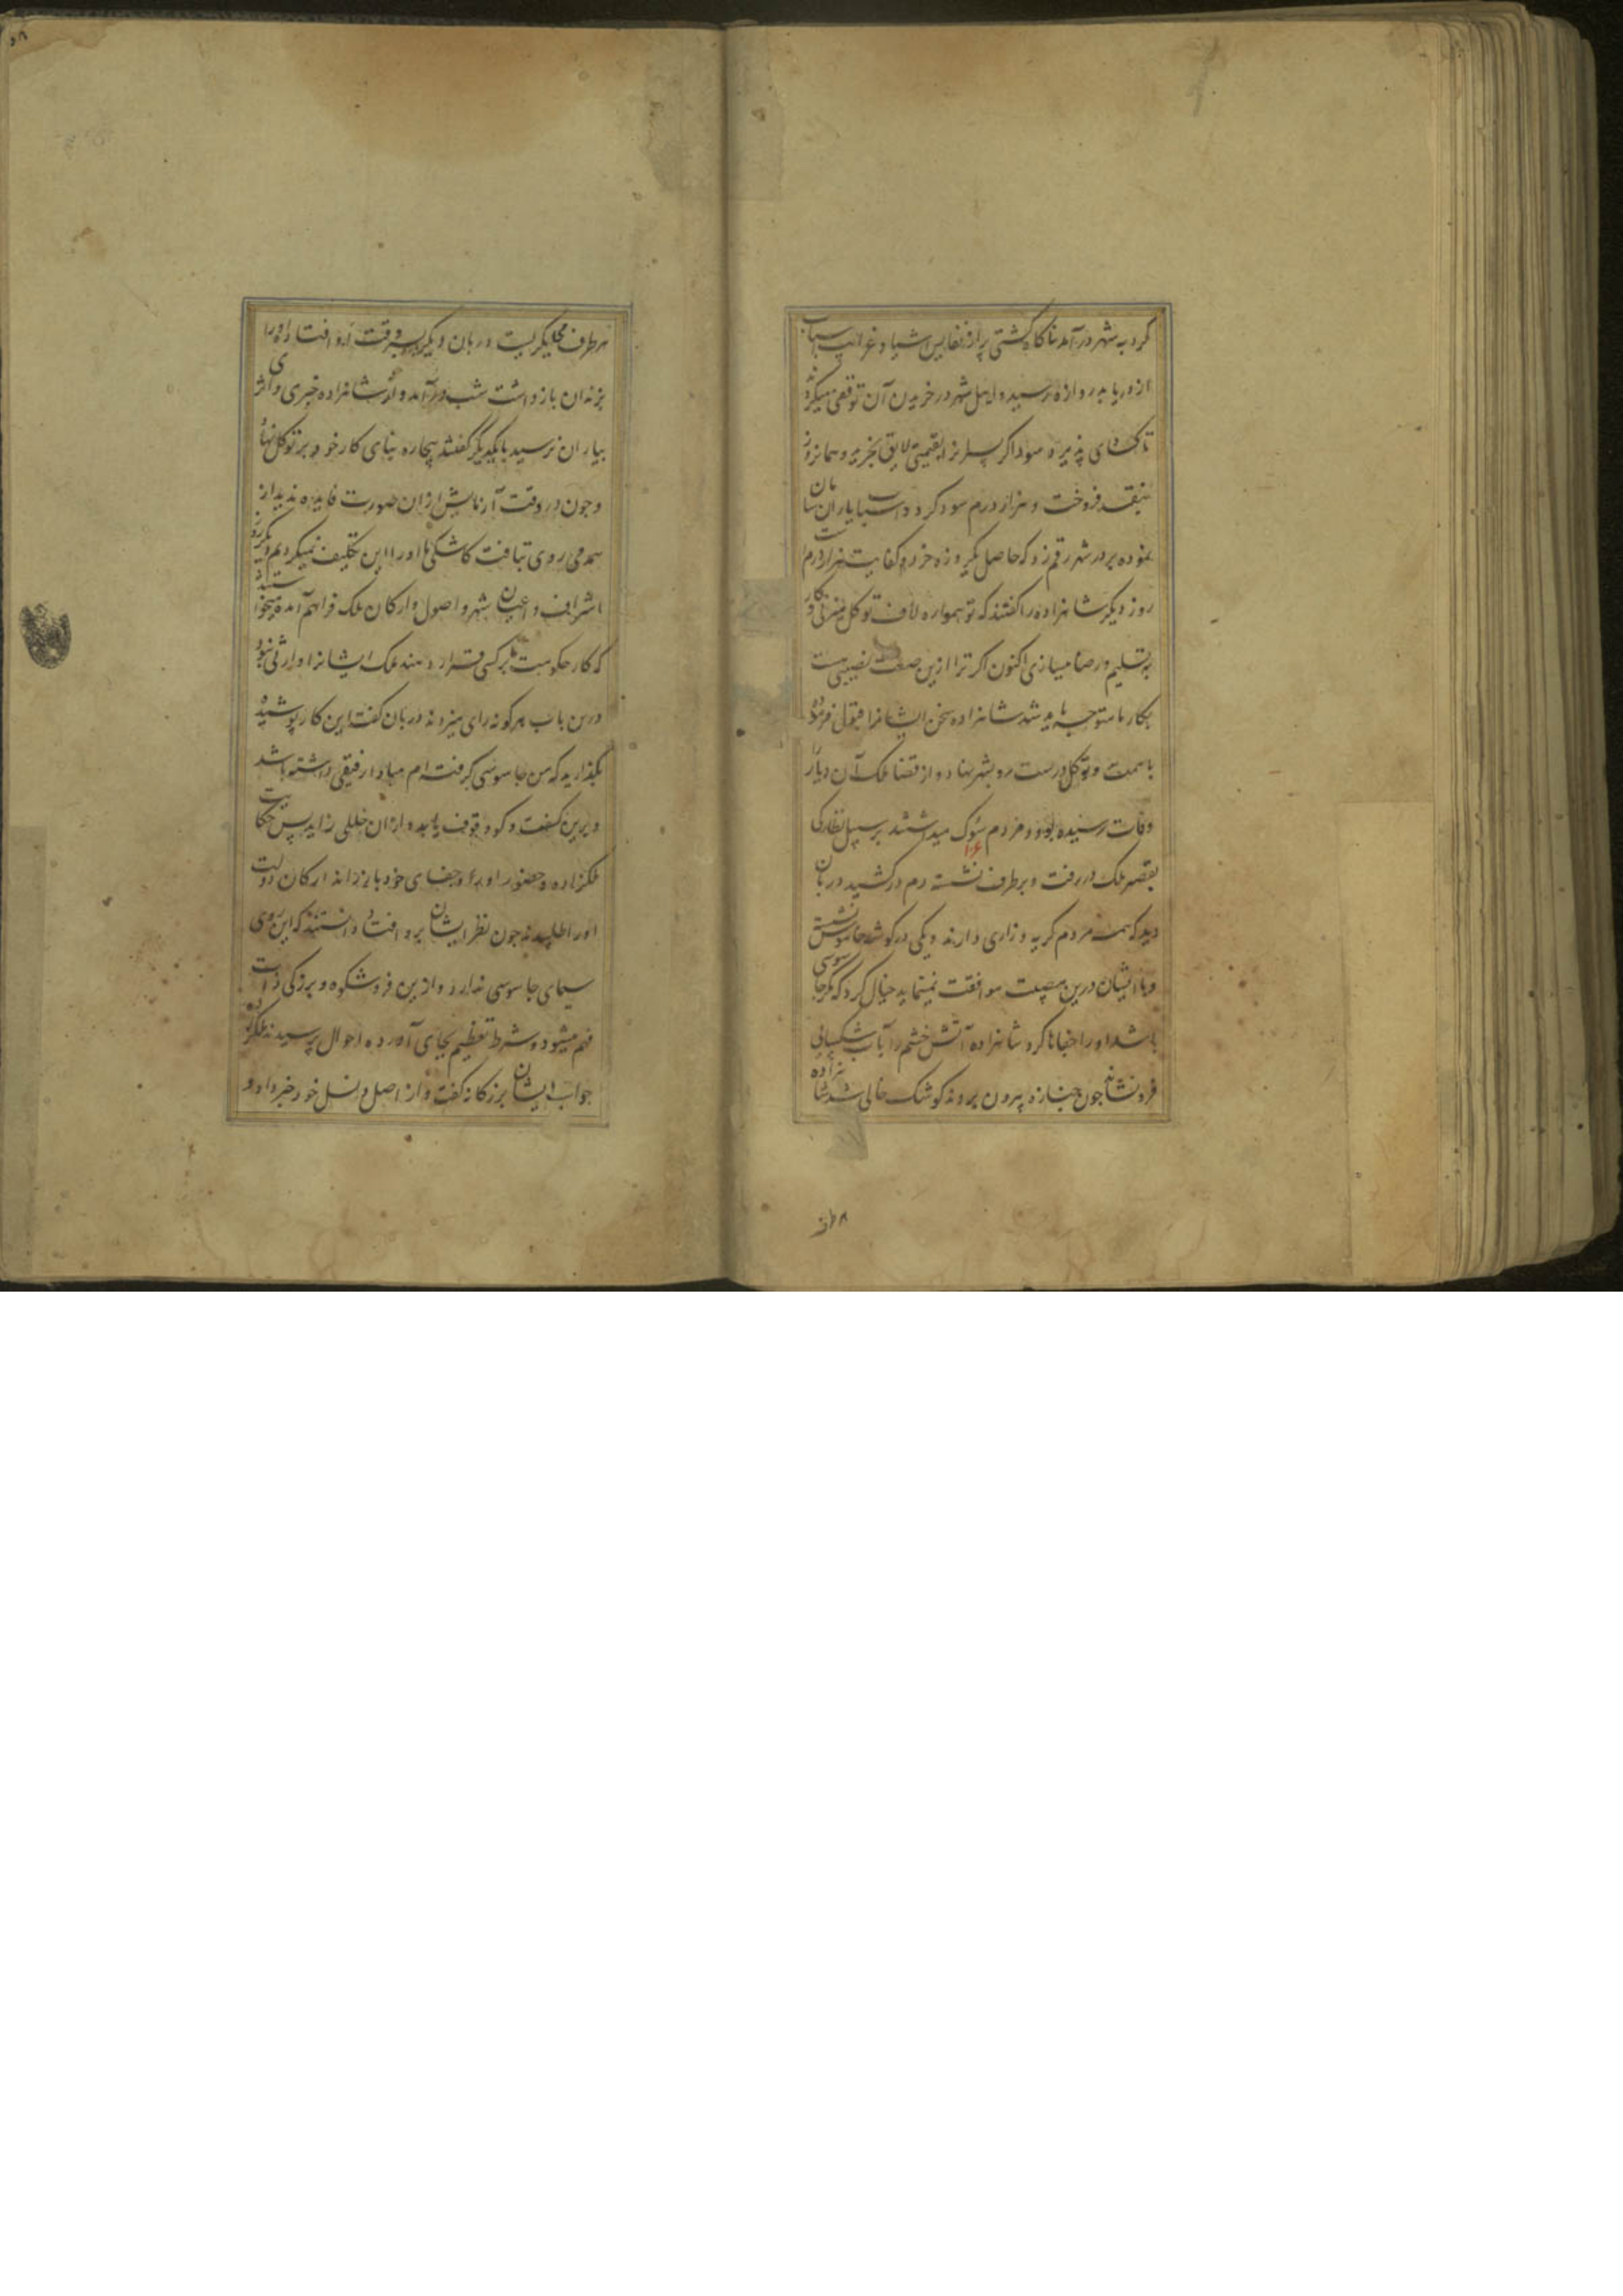 کرد به شهر درآمد ناکاه کشتی پر از نفایس اشیا و غرایب اسباب
از دریا به دروازه رسید و اهل شهر در خریدن آن توقفی میکردند
تا کسادی پذیرد سوداکر پسر انرا بقیمتی لایق بخرید و همانروز
بنقد فروخت و هزار درم سود کرد و اسباب یاران سامان
نموده بر در شهر رقم زد که حاصل یکروزه خرد و کفایت هزار درم است
روز دیکر شاهزاده را کفتند که تو همواره لاف توکل میزنی و کار
به تسلیم و رضا میسازی اکنون اکر ترا ازین صفت نصیبی هست
بکار ما متوجه باید شد شاهزاده سخن ایشانرا قبول فرموده
با همت و توکل درست رو بشهر نهاد و از قضا ملک آن دیار را
وفات رسیده بود و مردم سوک میداشتند بر سبیل نظارکی
بقصر ملک در رفت و برطرف نشسته دم درکشید دربان
دید که همه مردم کریه و زاری دارند و یکی در کوشه خاموش نشسته
و با ایشان درین مصیبت موافقت نمینماید خیال کرد که مکر جاسوسی
باشد او را جفاها کرد شاهزاده آتش خشم را بآب شکیبائی
فرو نشاند چون جنازه بیرون بردند کوشک خالی شد شاهزاده
۱۰۶
هرطرف می نکریست دربان دیکر بسروقت او افتاد و او را
بزندان بازداشت شب درآمد و از شاهزاده خبری و اثری
بیاران نرسید با یکدیکر کفتند بیچاره بنای کار خود بر توکل نهاد
و چون در وقت آزمایش ازان صورت فایده ندید از
همدمی روی بتافت کاشکی ما او را این تکلیف نمیکردیم دیکر روز
اشراف و اعیان شهر و اصول و ارکان ملک فراهم آمده میخواستند
که کار حکومت بر کسی قرار دهند ملک ایشانرا وارثی نبود
درین باب هرکونه رای میزدند دربان کفت این کار پوشیده
بکذارید که من جاسوسی کرفته ام مبادا رفیقی داشته باشد
و برین کفت وکو وقوف یابد و ازان خللی زاید پس حکایت
ملکزاده و حضور او و جفای خود باز راند ارکان دولت
او را طلبیدند چون نظر ایشان برو افتاد دانستند که این روی
سیمای جاسوسی ندارد و ازین فر و شکوه و بزرکی ذات
فهم میشود شرط تعظیم بجای آورده احوال پرسیدند ملکزاده
جواب ایشان بزرکانه کفت و از اصل و نسل خود خبر داد و